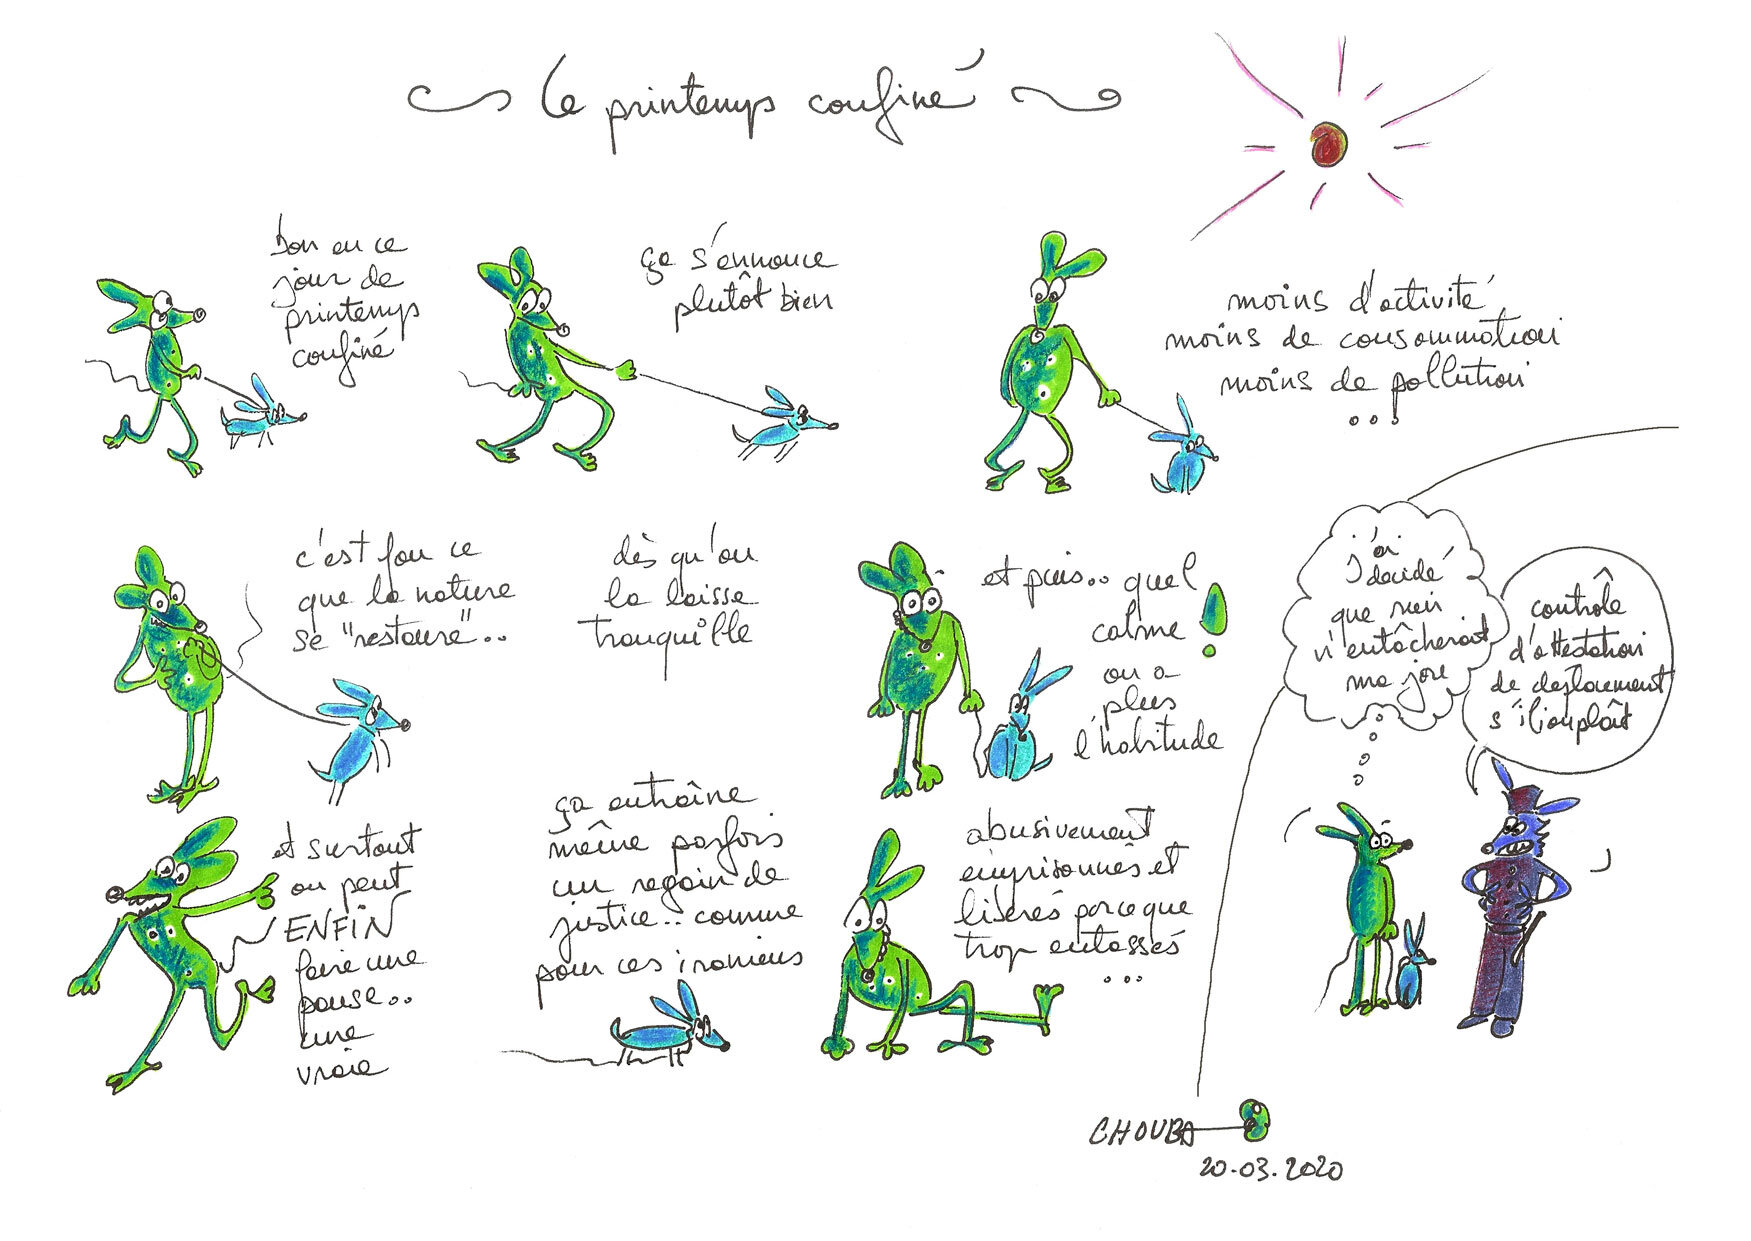 le printemps confiné
bon en ce
jour de
printemps
confiné
ça s'ennonce
plutôt bien
moins d'activité
moins de consommation
moins de pollution
...
c'est fou ce
que la nature
se "restaure"..
dès qu'on
la laisse
tranquille
et puis.. quel
calme !
on a
plus
l'habitude
et surtout
on peut
ENFIN
faire une
pause..
une
vraie
ça entraîne
même parfois
un regain de
justice.. comme
pour ces iraniens
abusivement
emprisonnés et
libérés parce que
trop entassés
...
j'ai
décidé
que rien
n'entâcherait
ma joie
contrôle
d'attestation
de deplacement
s'iliouplaît
CHOUBA
20.03.2020